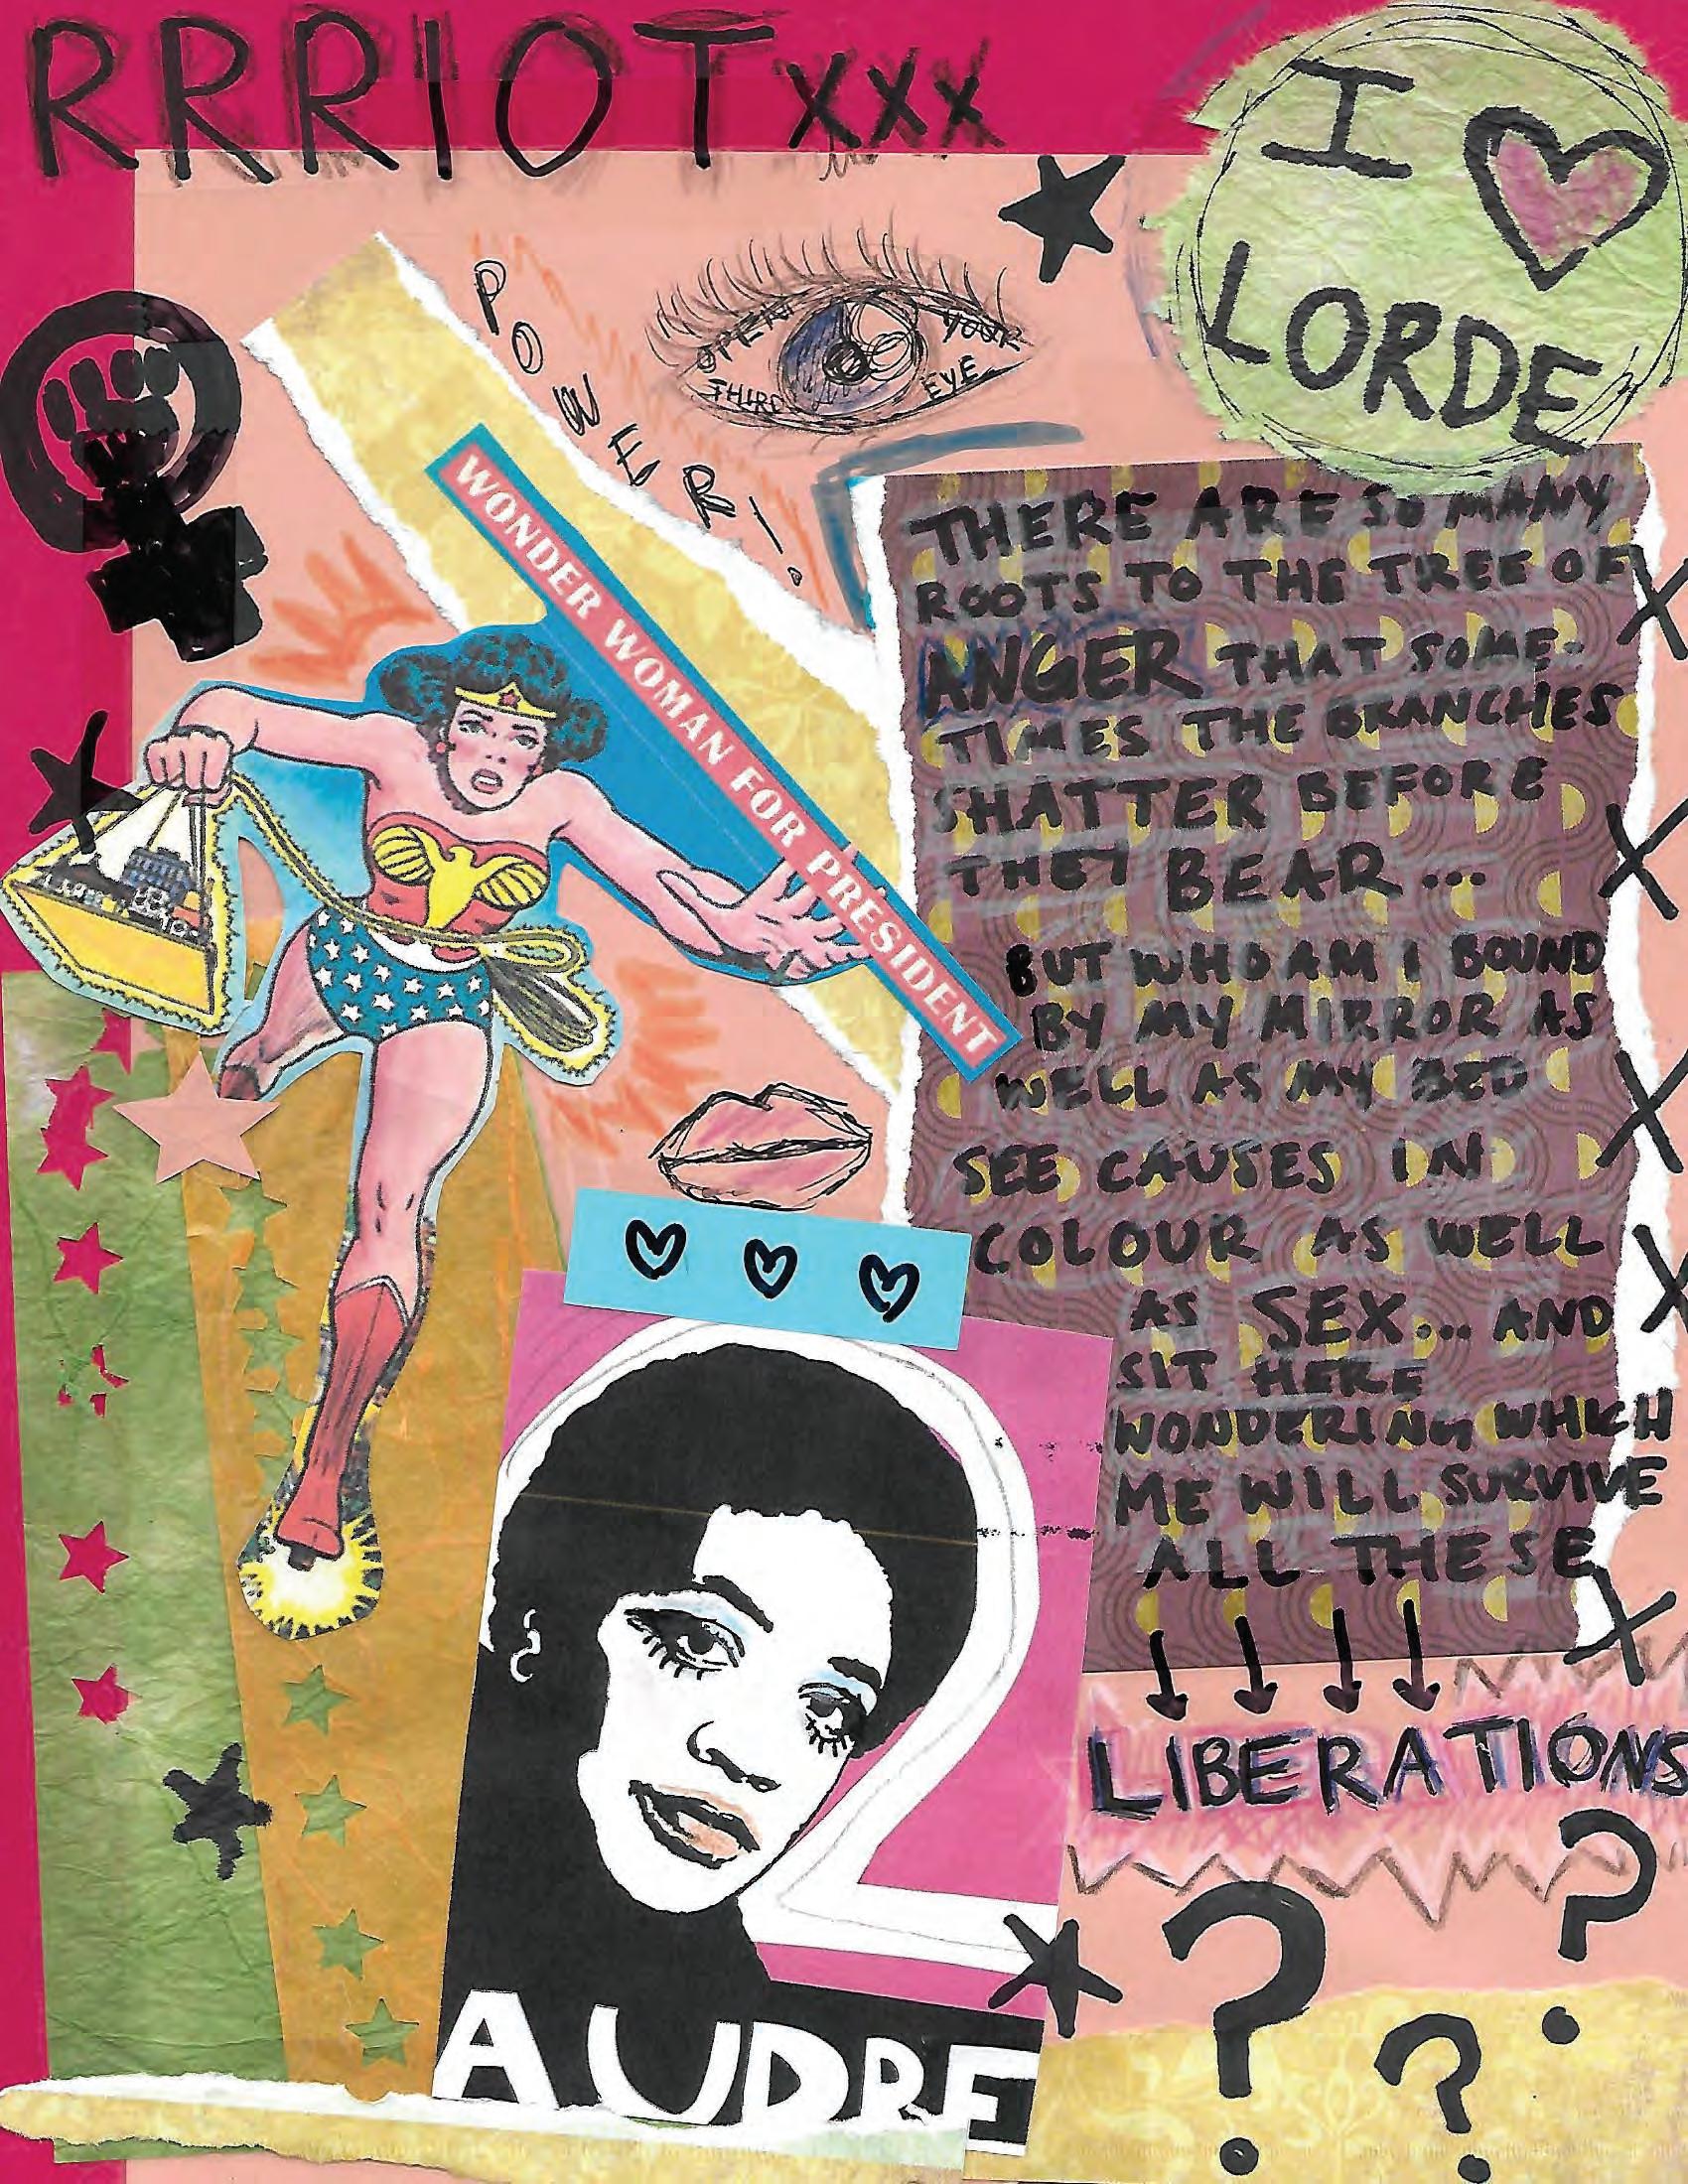 RRRIOTxxx
I ♥
LORDE
POWER!
OPEN YOUR
THIRD EYE
WONDER WOMAN FOR PRESIDENT
THERE ARE SO MANY
ROOTS TO THE TREE OF
ANGER THAT SOME-
TIMES THE BRANCHES
SHATTER BEFORE
THEY BEAR...
BUT WHO AM I BOUND
BY MY MIRROR AS
WELL AS MY BED
SEE CAUSES IN
COLOUR AS WELL
AS SEX... AND
SIT HERE
WONDERING WHICH
ME WILL SURVIVE
ALL THESE
LIBERATIONS
? ? ?
AUDRE